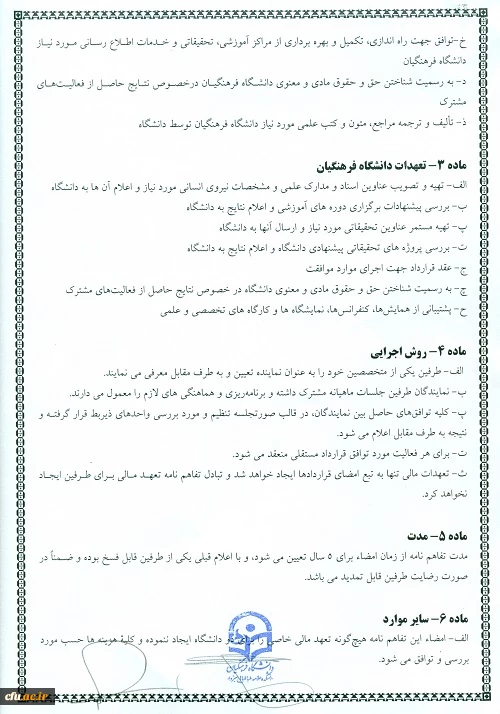 خ-توافق جهت راه اندازی، تکمیل و بهره برداری از مراکز آموزشی، تحقیقاتی و خدمات اطلاع رسانی مورد نیاز
دانشگاه فرهنگیان
د- به رسمیت شناختن حق و حقوق مادی و معنوی دانشگاه فرهنگیان درخصوص نتایج حاصل از فعالیت‌های
مشترک
ذ- تألیف و ترجمه مراجع، متون و کتب علمی مورد نیاز دانشگاه فرهنگیان توسط دانشگاه
ماده ۳- تعهدات دانشگاه فرهنگیان
الف- تهیه و تصویب عناوین اسناد و مدارک علمی و مشخصات نیروی انسانی مورد نیاز و اعلام آن ها به دانشگاه
ب- بررسی پیشنهادات برگزاری دوره های آموزشی و اعلام نتایج به دانشگاه
پ- تهیه مستمر عناوین تحقیقاتی مورد نیاز و ارسال آنها به دانشگاه
ت- بررسی پروژه های تحقیقاتی پیشنهادی دانشگاه و اعلام نتایج به دانشگاه
ج- عقد قرارداد جهت اجرای موارد موافقت
چ- به رسمیت شناختن حق و حقوق مادی و معنوی دانشگاه در خصوص نتایج حاصل از فعالیت‌های مشترک
ح- پشتیبانی از همایش‌ها، کنفرانس‌ها، نمایشگاه ها و کارگاه های تخصصی و علمی
ماده ۴- روش اجرایی
الف- طرفین یکی از متخصصین خود را به عنوان نماینده تعیین و به طرف مقابل معرفی می نمایند.
ب- نمایندگان طرفین جلسات ماهیانه مشترک داشته و برنامه‌ریزی و هماهنگی های لازم را معمول می دارند.
پ- کلیه توافق‌های حاصل بین نمایندگان، در قالب صورتجلسه تنظیم و مورد بررسی واحدهای ذیربط قرار گرفته و
نتیجه به طرف مقابل اعلام می شود.
ت- برای هر فعالیت مورد توافق قرارداد مستقلی منعقد می شود.
ث- تعهدات مالی تنها به تبع امضای قراردادها ایجاد خواهد شد و تبادل تفاهم نامه تعهد مالی برای طرفین ایجاد
نخواهد کرد.
ماده ۵- مدت
مدت تفاهم نامه از زمان امضاء برای ۵ سال تعیین می شود، و با اعلام قبلی یکی از طرفین قابل فسخ بوده و ضمناً در
صورت رضایت طرفین قابل تمدید می باشد.
ماده ۶- سایر موارد
الف- امضاء این تفاهم نامه هیچ‌گونه تعهد مالی خاصی را برای دو دانشگاه ایجاد ننموده و کلیهٔ هزینه ها حسب مورد
بررسی و توافق می شود.
دانشگاه فرهنگیان
cfu.ac.ir